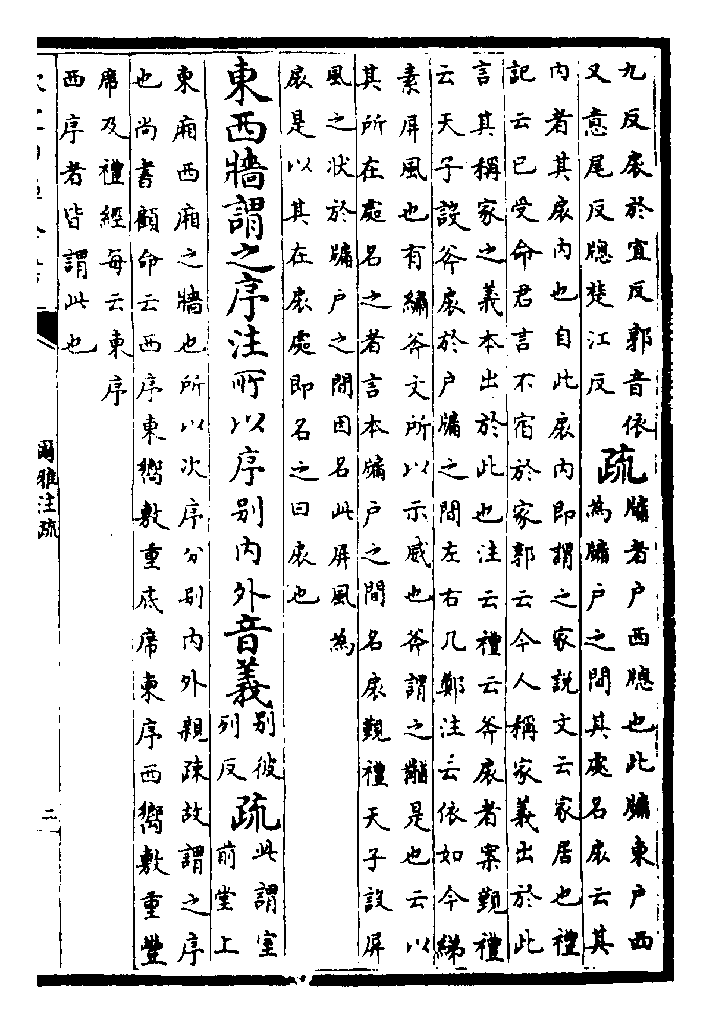 九反扆於宜反郭音依
又意尾反牕楚江反
疏
牖者户西牕也此牖東户西
為牖户之間其處名扆云其
内者其扆内也自此扆内即謂之家説文云家居也禮
記云已受命君言不宿於家郭云今人稱家義出於此
言其稱家之義本出於此也注云禮云斧扆者案覲禮
云天子設斧扆於户牖之間左右几鄭注云依如今綈
素屏風也有繡斧文所以示威也斧謂之黼是也云以
其所在處名之者言本牖户之間名扆覲禮天子設屏
風之狀於牖户之間因名此屏風為
扆是以其在扆處即名之曰扆也
東西牆謂之序注所以序别内外音義
别彼
列反
疏
此謂室
前堂上
東廂西廂之牆也所以次序分别内外親疎故謂之序
也尚書顧命云西序東嚮敷重底席東序西嚮敷重豐
席及禮經每云東序
西序者皆謂此也
爾雅注疏
二